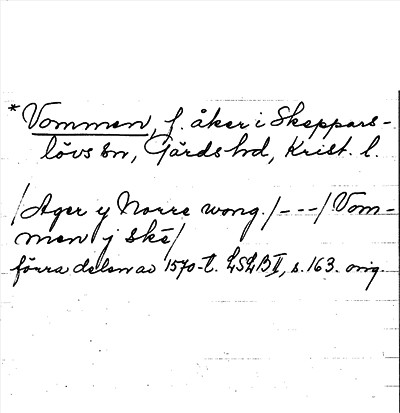 *Vommen, f. åker i Skeppars-
lövs sn, Gärds hd, Krist. l.
/Ager y Norre wong./---/Vom-
men j skē/
förra delen av 1570-t. LSLB II, s. 163. orig.